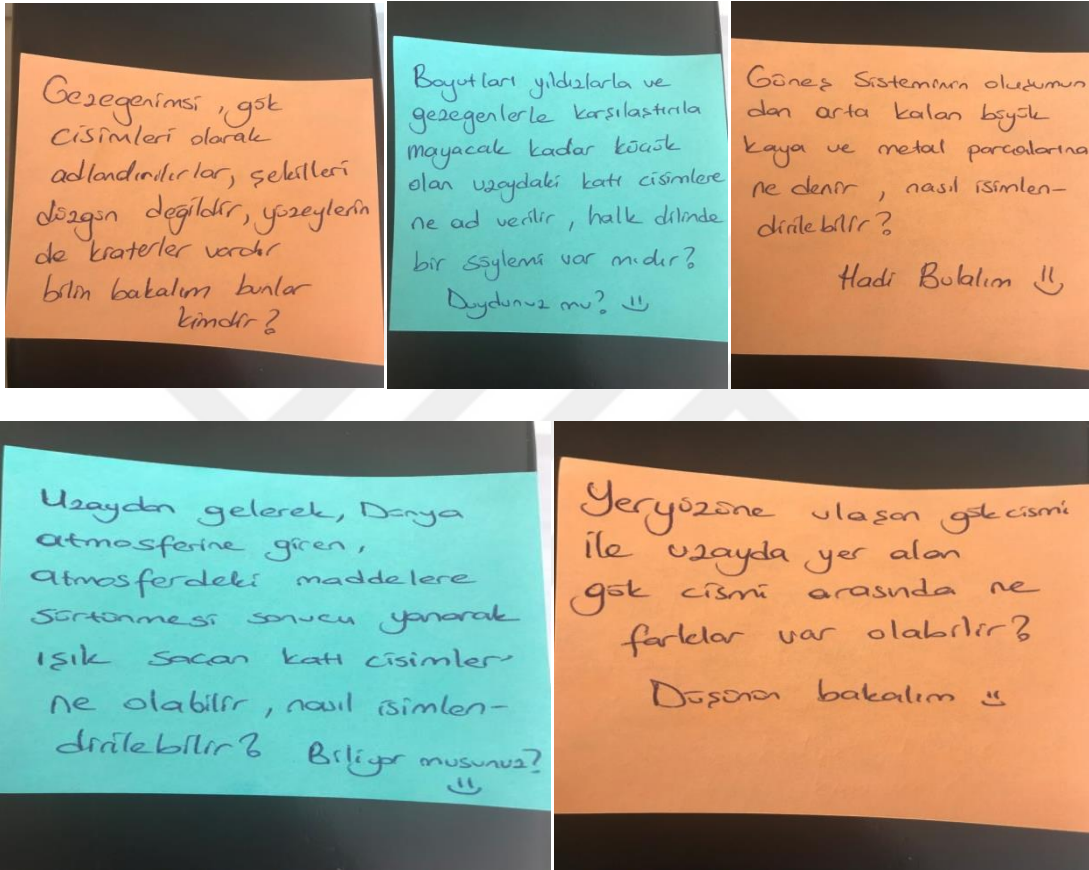 Gezegenimsi, gök
cisimleri olarak
adlandırılırlar, şekilleri
düzgün değildir, yüzeylerin
de kraterler vardır
bilin bakalım bunlar
kimdir?
Boyutları yıldızlarla ve
gezegenlerle karşılaştırıla
mayacak kadar küçük
olan uzaydaki katı cisimlere
ne ad verilir, halk dilinde
bir söylemi var mıdır?
Duydunuz mu?
Güneş Sisteminin oluşumun
dan arta kalan büyük
kaya ve metal parçalarına
ne denir, nasıl isimlen-
dirilebilir?
Hadi Bulalım
Uzaydan gelerek, Dünya
atmosferine giren,
atmosferdeki maddelere
sürtünmesi sonucu yanarak
ışık saçan katı cisimler
ne olabilir, nasıl isimlen-
dirilebilir? Biliyor musunuz?
Yeryüzüne ulaşan gök cismi
ile uzayda yer alan
gök cismi arasında ne
farklar var olabilir?
Düşünün bakalım